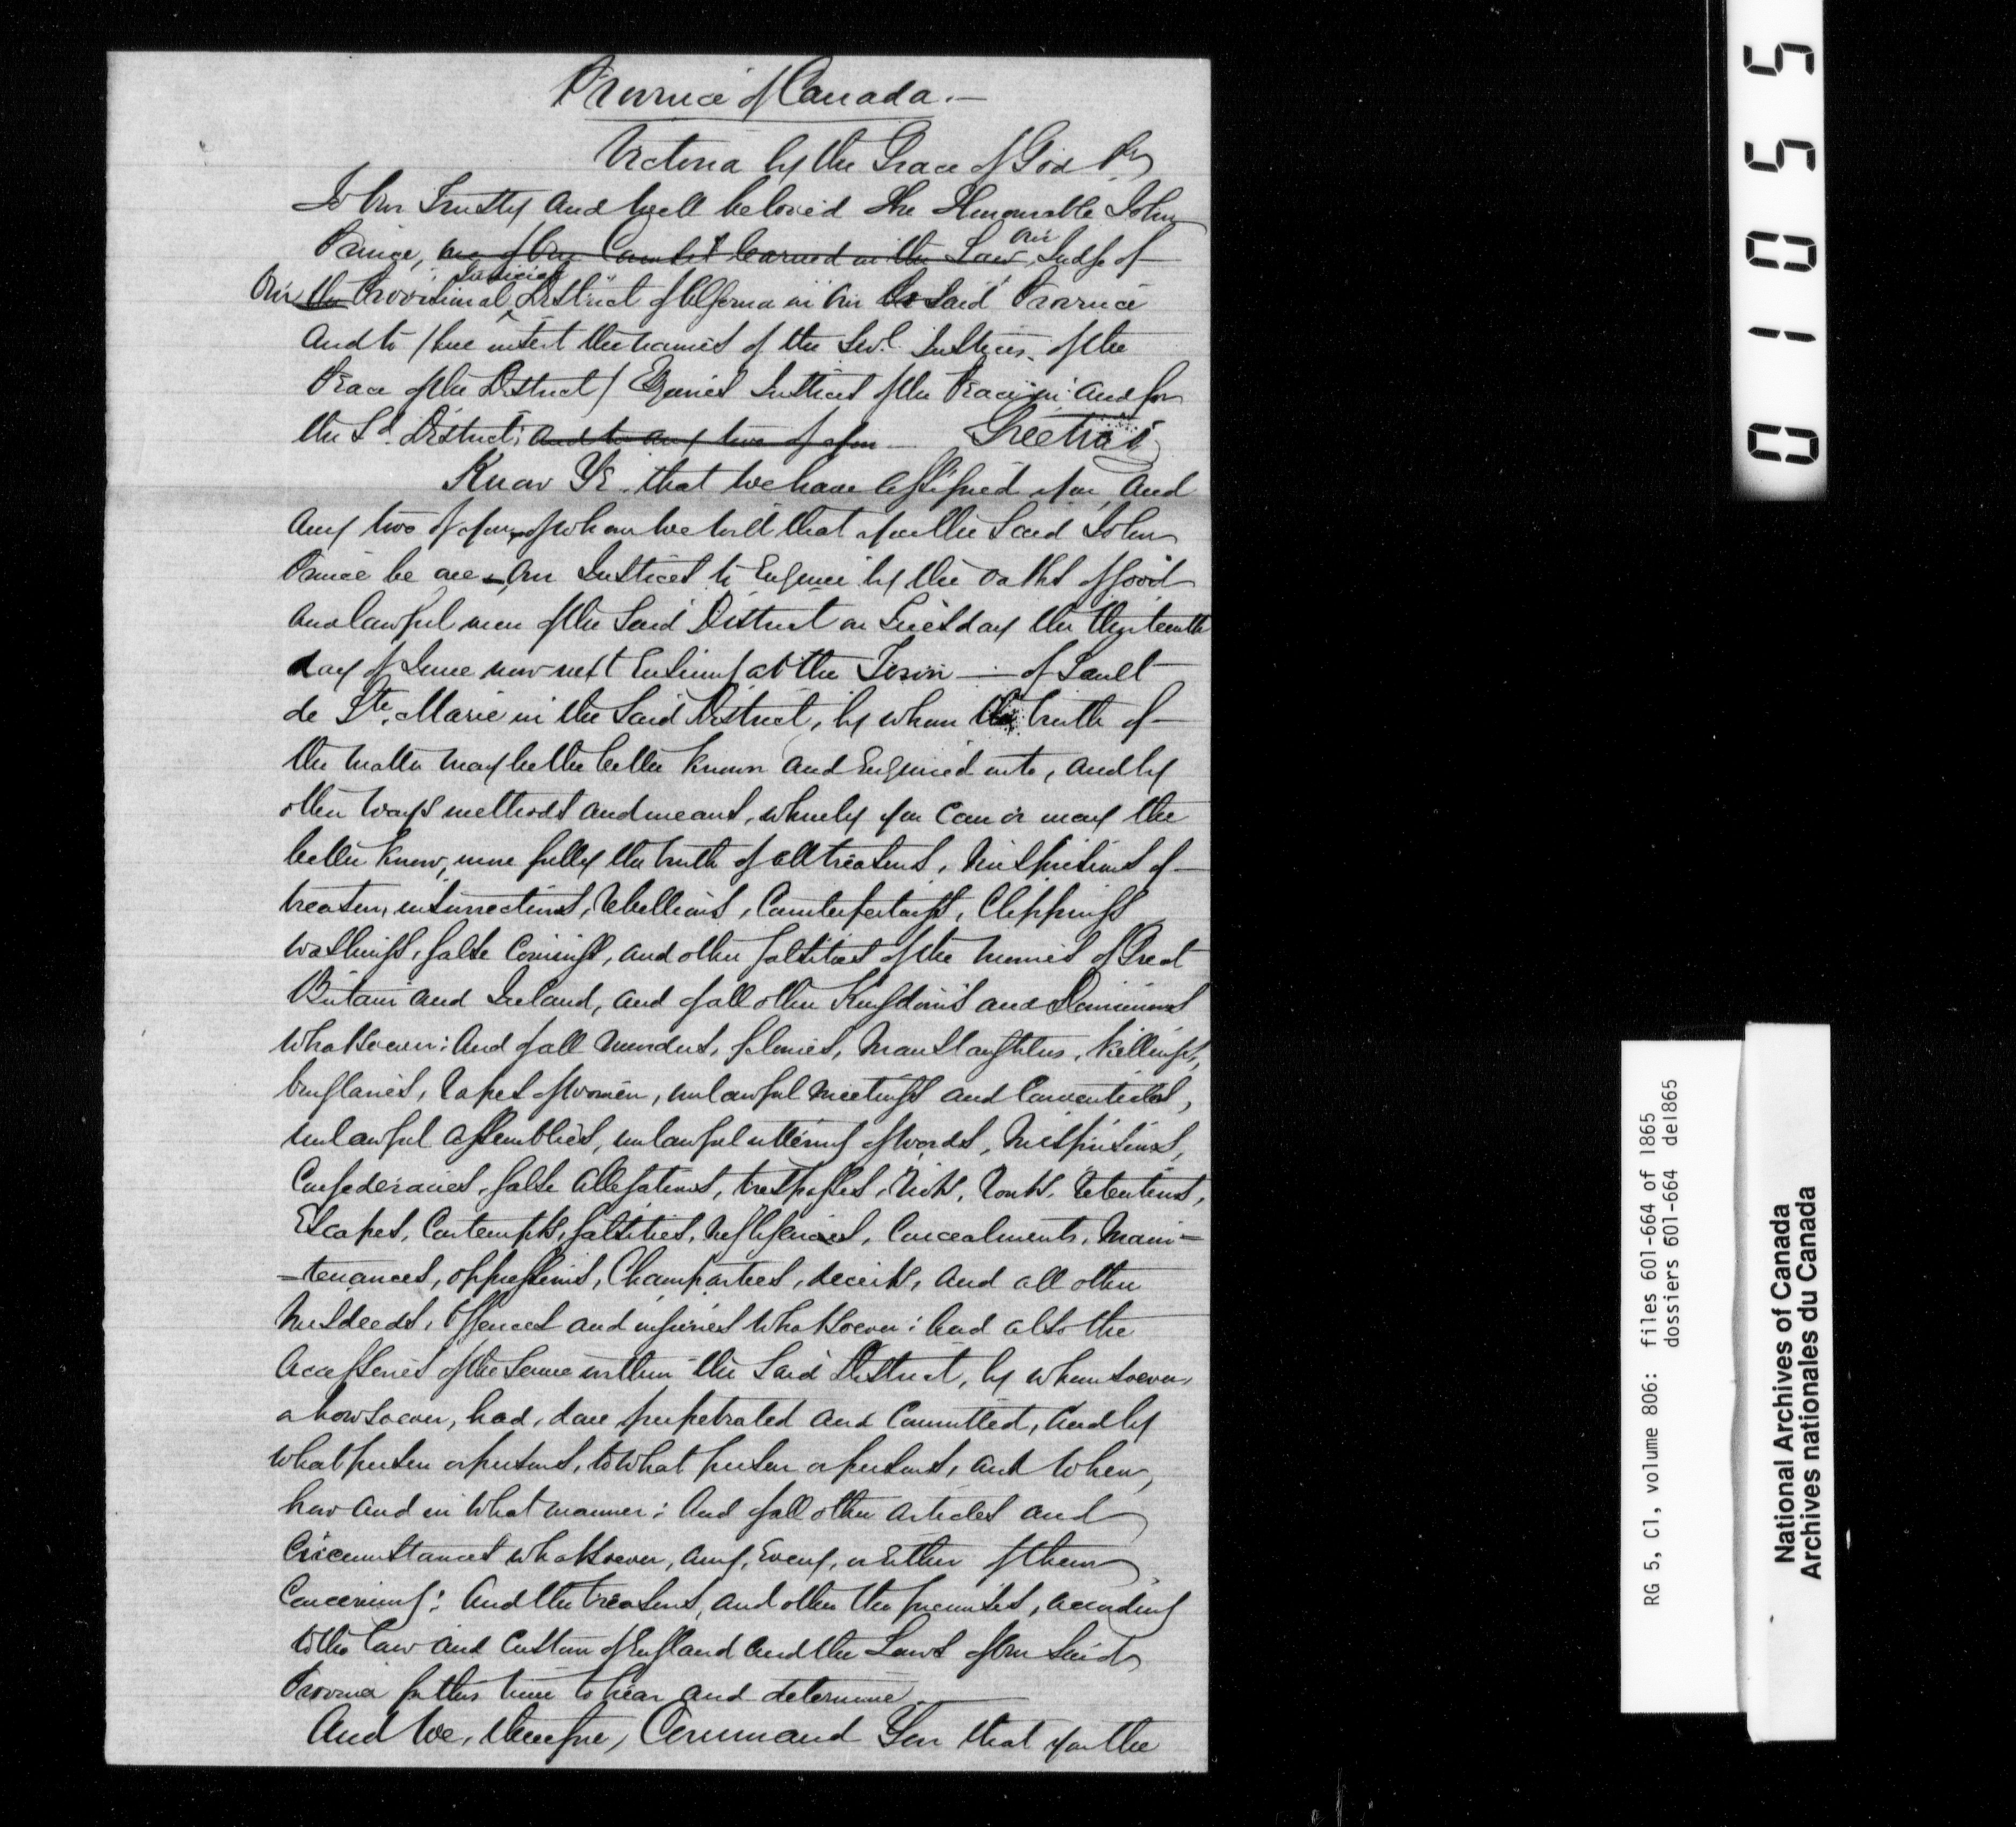 Province of Canada.—
Victoria by the Grace of God &c
To Our Trusty and well beloved The Honourable John
Prince, one of Our Counsel learned in the Law, Our Judge of
Our the Provisional Judicial District of Algoma in Our the said Province
And to /here insert the names of the Sevl. Justices of the
Peace of the District/ Esquires Justices of the Peace in and for
the Sd. District; and to any two of you — Greeting
Know Ye that We have assigned you and
any two of you, of whom We will that you the said John
Prince be one, Our Justices to Enquire by the oaths of good
and lawful men of the said District on Tuesday the thirteenth
day of June now next Ensuing at the Town — of Sault
de Ste. Marie in the said District, by whom the truth of
the matter may be the better known and Enquired into, and by
other ways methods and means, whereby you can or may the
better know, more fully the truth of all treasons, Misprisions of
treason, insurrections, Rebellions, Counterfeitings, Clippings
washings, false Coinings, and other falsities of the monies of Great
Britain and Ireland, and of all other Kingdoms and Dominions
whatsoever: And of all Murders, felonies, Manslaughters, Killings,
burglaries, Rapes of women, unlawful meetings and Conventicles,
unlawful assemblies, unlawful uttering of words, Misprisions,
Confederacies, false allegations, trespasses, Riots, Routs, Retentions,
Escapes, Contempts, falsities, Negligences, Concealments, Main=
=tenances, oppressions, Champarties, deceits, and all other
Misdeeds, Offences and injuries whatsoever: And also the
Accessories of the same within the said District, by whomsoever,
a howsoever, had, done perpetrated and Committed, And by
what person or persons, to what person or persons, and when,
how and in what manner: And of all other articles and
Circumstances whatsoever, any, Every, or Either of them
Concerning: And the treasons, and other the premises, according
to the law and Custom of England and the Laws of Our said
Province for this time to hear and determine
And We, therefore, Command You that you the
01055
RG 5, C1, volume 806: files 601-664 of 1865
dossiers 601-664 de1865
National Archives of Canada
Archives nationales du Canada